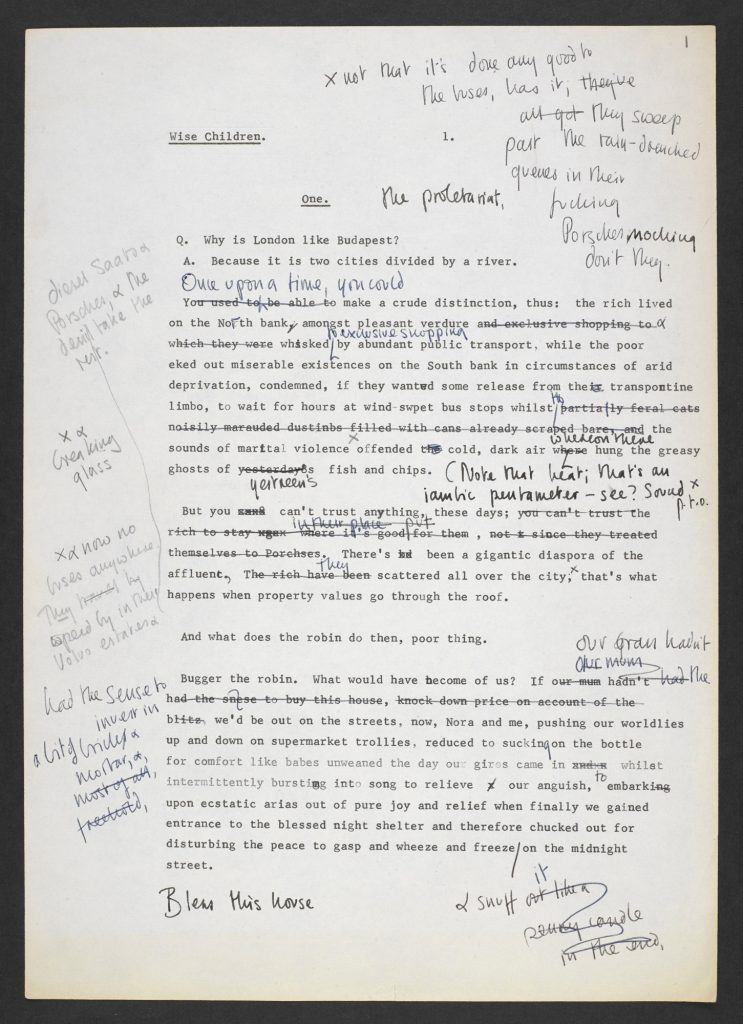 1
x not that it's done any good to
the buses, has it; they've
all got they sweep
past the rain-drenched
queues in their
fucking
Porsches, mocking
don't they.
Wise Children.
1.
One.
the proletariat,
Q. Why is London like Budapest?
A. Because it is two cities divided by a river.
Once upon a time, you could
You used to be able to make a crude distinction, thus: the rich lived
on the North bank, amongst pleasant verdure and exclusive shopping to &
to exclusive shopping
which they were whisked by abundant public transport, while the poor
eked out miserable existences on the South bank in circumstances of arid
deprivation, condemned, if they wanted some release from their transpontine
limbo, to wait for hours at wind-swpet bus stops whilst partially feral cats
the
noisily marauded dustinbs filled with cans already scraped bare, and the
sounds of marital violence x offended the cold, dark air where hung the greasy
whereon there
ghosts of yesterday's fish and chips.
yestreen's
(Note that beat; that's an
iambic pentameter - see? Sound x
p.t.o.
But you can't trust anything, these days; you can't trust the
in their place put
rich to stay where it's good for them , not since they treated
themselves to Porchses. There's been a gigantic diaspora of the
affluent, The rich have been scattered all over the city; x that's what
they
happens when property values go through the roof.
And what does the robin do then, poor thing.
our gran hadn't
our mum
Bugger the robin. What would have become of us? If our mum hadn't had the
had the snese to buy this house, knock down price on account of the
blitz, we'd be out on the streets, now, Nora and me, pushing our worldlies
up and down on supermarket trollies, reduced to sucking on the bottle
for comfort like babes unweaned the day our giros came in whilst
intermittently bursting into song to relieve our anguish, to embarking
upon ecstatic arias out of pure joy and relief when finally we gained
entrance to the blessed night shelter and therefore chucked out for
disturbing the peace to gasp and wheeze and freeze/on the midnight
street.
Bless this house
& snuff it out like a
penny candle
in the end,
diesel Saabs &
Porsches, & the
devil take the
rest.
x &
Creaking
glass
x & now no
buses anywhere.
They by
speed by in they
Volvo estates &
had the sense to
invest in
a bit of bricks &
mortar, &,
most of all,
freehold,